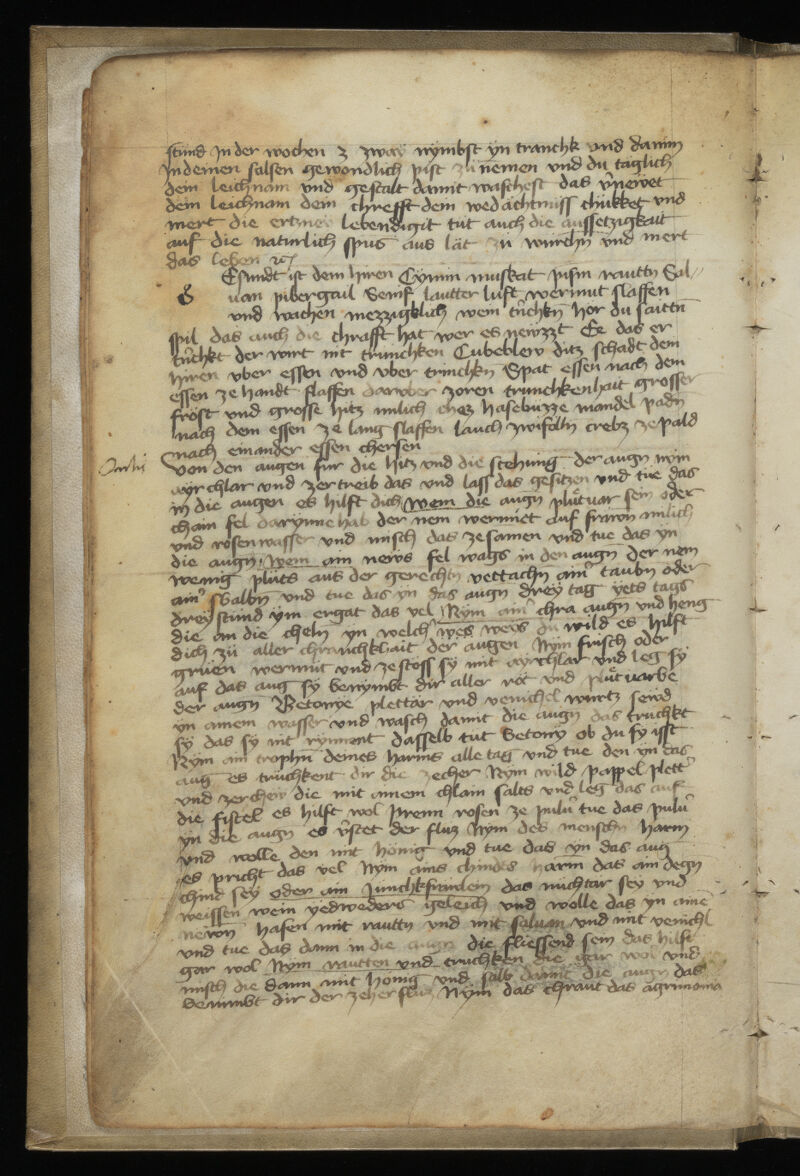 stund In der wochen z zway nymbst yn tranchk und darin
In deinen salsen gewondlich pist zu nemen und du taglich
dem leichnam und gestalt damit waschest das vernewet
dem leichnam dem chrefft dem wedächtnuss chukket und
mert die ertzney lebendigit tut auch die aussetzigkait
auf die naturlich spus aus lät zu wurchn und mert
das leben etc
Esundt ist dem hiren Cymin muskat pisin rauttn Sal
uan pibergail Senif lautter luft wermut slaffen
und wachen mezzigklich wein trinchkn hor du saittn
spil das auch die chrafft hat wer es newzzt Ee das er
trinchkt der wirt nit trunchken Cubeblen ditz schadt dem
hiren uber essen und uber trinchkn Spat essen nach dem
essen ze handt slaffen darvber zoren trunchkenhait grosser
frost und grosse hitz milich chez haselnuzze mandel padn
nach dem essen ze lang slaffen lauch zwifelln crebz ze pald
nach einander essen chersen
Oculis
Von den augen fur die hitz und die stechung der augn nym
ayrchlar und zertreib das und lass das gesitzen und tue das
in die augen es hilft dich wem die augn plutvar sein oder
chain fel darynne hab der nem wermuet auf frawn milich
und rosenwasser und misch das zesamen und tue das yn
die augn wem ain news fel wags in den augn der nem
wenig pluts aus der gerechtn vettachn ainer taubn oder
ainer swalbn und tue das yn das augn drey tag yets tags
drey stund ym ergat das vel Nym ain chra augn und heng
die an die cheln yn welch wes wews du wild es hilft
dich zu aller chranchkhait der augen Nym frisch oder
gruen wermut und zestoss sy mit ayrchlar und leg sy
auf das aug sy benymbt dir aller röt und plutvarbe
der augn Betonye plettar und venichel wurtz sewd
yn ainem wasser und wasch damit die augn das truchkt
sy das sy nit rynnent dasselb tut betony ob du sy isst
Nym ain trophn deines harms alle tag und tue den yn das
aug es truchkent dir die zecher Nym wild pappel plett
und zerchew die mit ainem chlain saltz und leg das auf
die fistel es hilft wol Prenn rosen ze puluer tue das puluer
yn die augn es verstet der fluz Nym des menschn harm
und wolle den mit honig und tue das yn das aug
es pricht das vel Nym ains chindes harm das ain degn
chind sey oder ain Junchkfrawlein das nuchtar sey und
weissen wein yedweders geleich und wolle das yn aine
newn hafen mit rauttn und mit saluan und mit venichl
und tue das dann in die augn die fliessend sein das hilft
gar wol Nym rautten und truchken die gar wol und
misch die dann mit honig und salb damit die augn das
benimbt dir der zeher fluz Nym das chraut das agrimonia